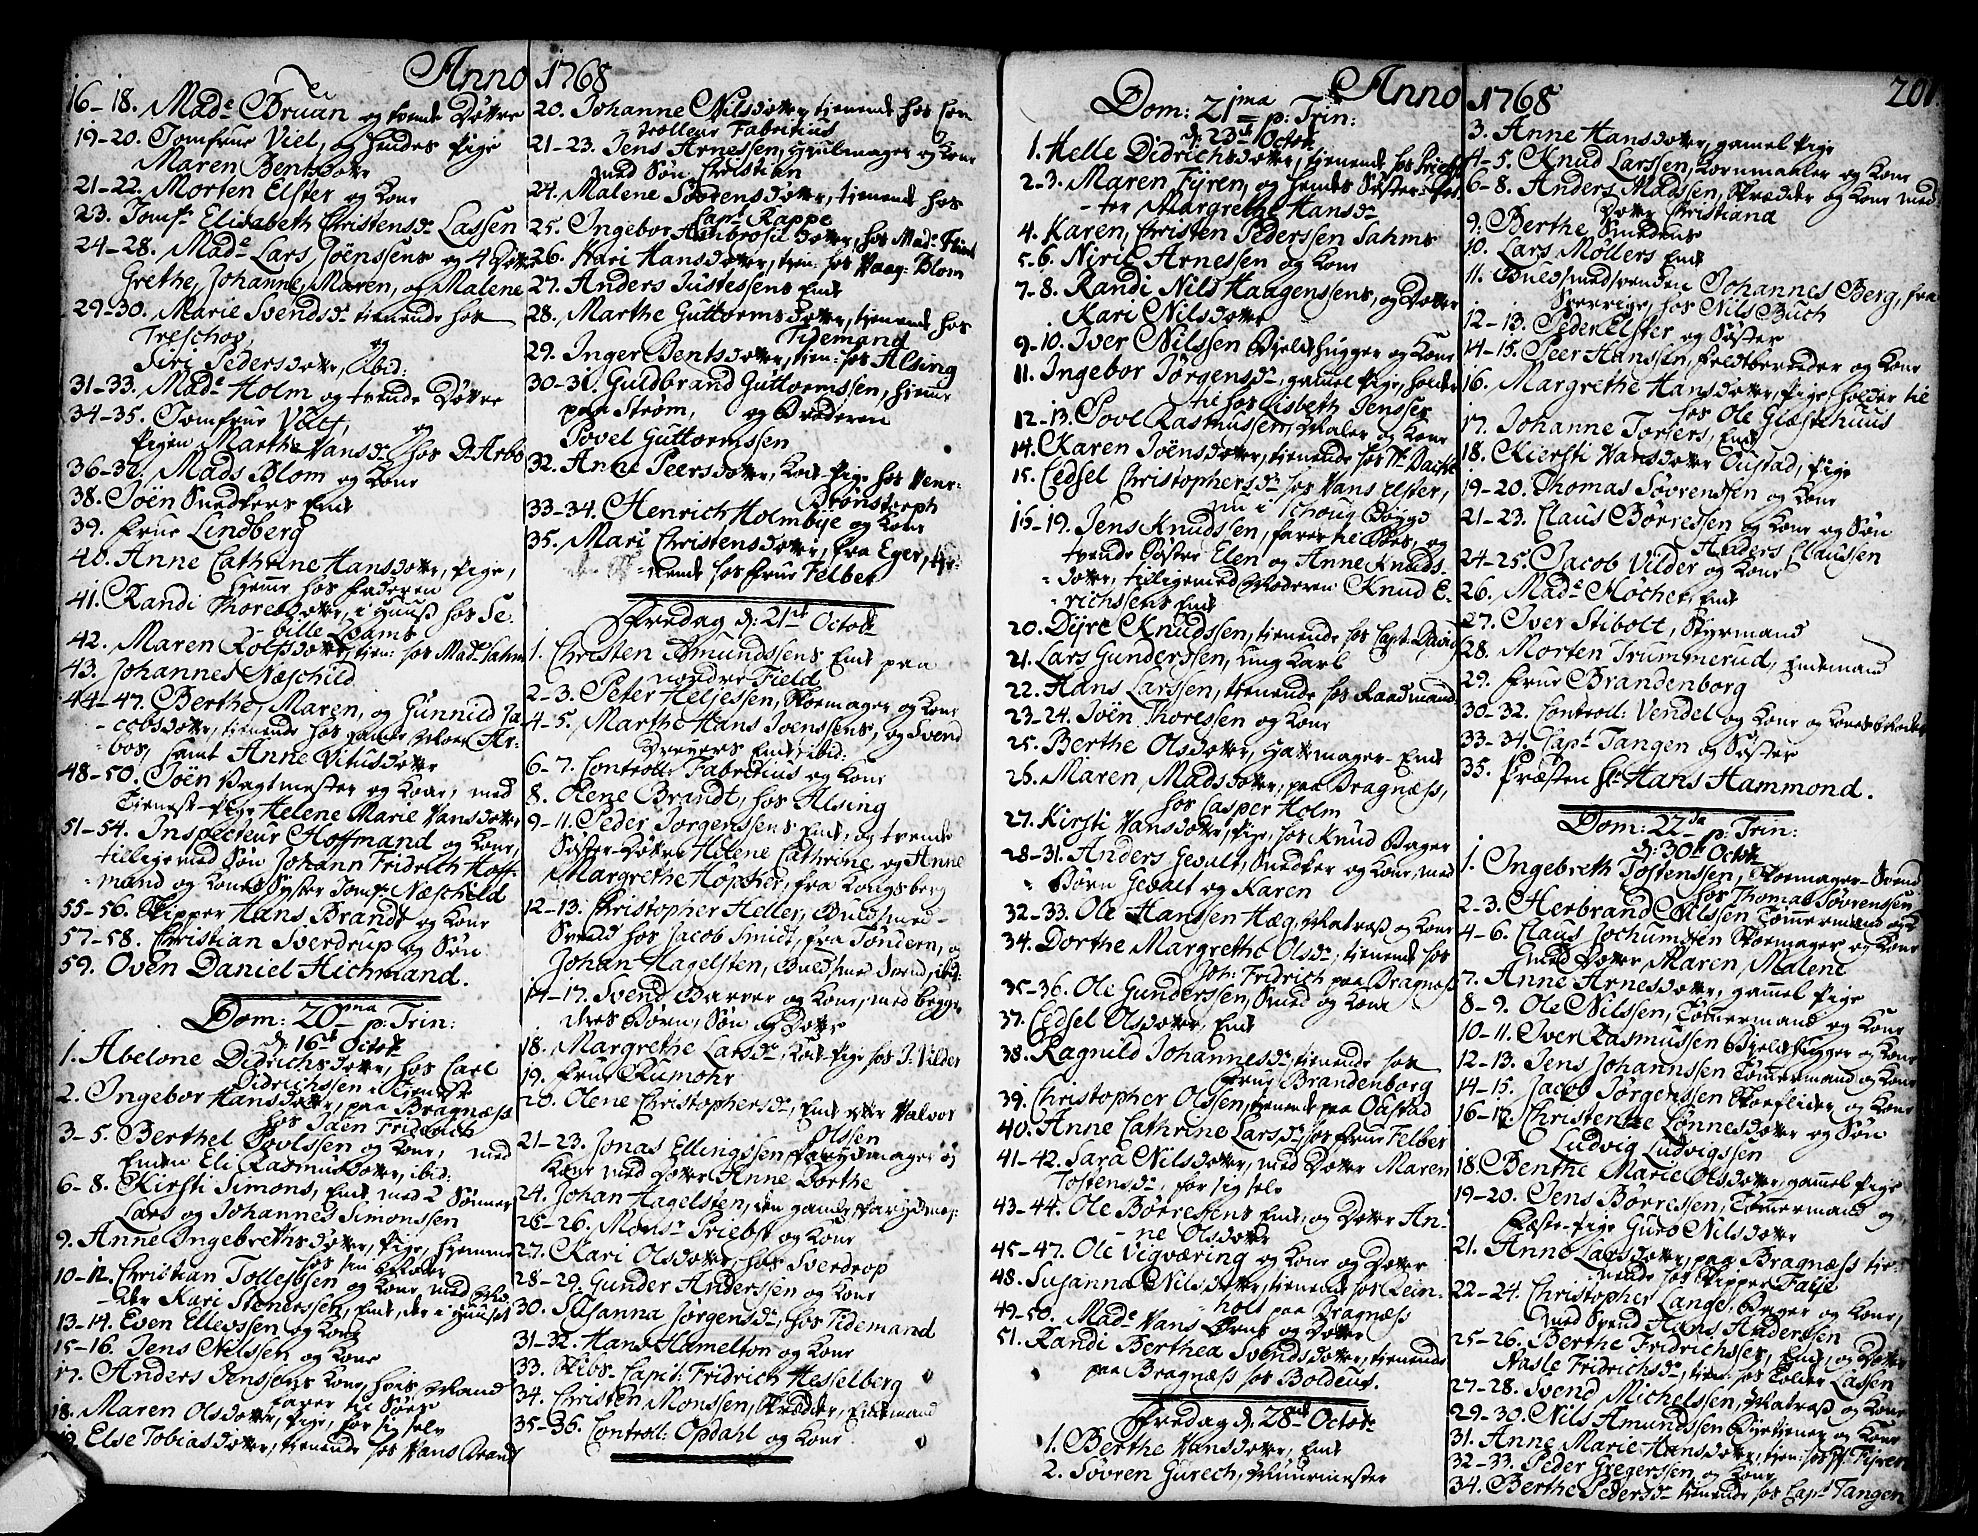 Anno 1768
16-18. Mad.e Bruun og tvende Døttre
19-20. Jomfrue Viel, og hendes Pige
Maren Bentsdotter
21-22. Morten Elster og Kone
23. Jomfr. Elisabeth Christensd. Lassen
24-28. Mad.e Lars Jöenssens og 4 Døttre
Grethe, Johanne, Maren, og Malene
29-30. Marie Svendsd. tienende hos
Treschov, og
Siri Pedersdotter, ibid:
31-33. Mad.e Holm og tvende Døttre
34-35. Jomfrue Velt, og
Pigen Marthe Hansd. hos D. Arbo
36-37. Mads Blom og Kone
38. Jöen Snedkers Enke
39. Frue Lindberg
40. Anne Cathrine Hansdotter, Pige,
hjemme hos Faderen
41. Randi Thoresdotter, i Huuss hos Se-
bille Adams
42. Maren Rolfsdotter, tien: hos Mad. Sahm
43. Johannes Næschild
44-47. Berthe, Maren, og Gunnild Ja-
cobsdotter, tienende hos gamle Moer Ar-
bos, samt Anne Vitusdotter
48-50. Jöen Vagtmester og Kone, med
Tienest-Pige Helene Marie Hansdotter
51-54. Inspecteur Hoffmand og Kone,
tillige med Søn Johann Fridrich Hoff-
mand og Kones Syster Jomfr. Næschild
55-56. Skipper Hans Brandt og Kone
57-58. Christian Sverdrup og Søn
59. Oven Daniel Hichmand.
Dom: 20ma p: Trin:
d. 16de Octob:
1. Abelone Didrichsdotter, hos Carl
Didrichssen i Tieneste
2. Ingebor Hansdotter, paa Bragnæss
hos Jaen Fridrich
3-5. Berthel Povlssen og Kone, med
Enken Eli Rasmusdotter, ibid:
6-8. Kirsti Simons, Enke med 2 Sønner
Lars og Johannes Simonssen
9. Anne Ingebrethsdotter, Pige, hjemme
hos sin Moder
10-12. Christian Tollefssen og Kone, med Mo-
der Kari Stenerssen, Enke, der i Huuset
13-14. Even Ellevssen og Kone
15-16. Jens Nilssen og Kone
17. Anders Jenssens Kone, hvis Mand
farer til Søes
18. Maren Olsdotter, Pige, for sig selv
19. Else Tobiasdotter, tienende hos Hans Brandt
20. Johanne Nilsdotter, tienende hos Con-
trolleur Fabritius
21-23. Jens Arnessen, Hiulmager og Kone
med Søn Christian
24. Malene Sørensdotter, tienende hos
Capt. Rappe
25. Ingebor Ambrosii dotter, hos Mad. Flint
26. Kari Hansdotter, tien: hos Vaag: Blom
27. Anders Justessens Enke
28. Marthe Guttormsdotter, tienende hos
Tidemand
29. Inger Bentsdotter, tien: hos Alsing
30-31. Guldbrand Guttormssen, hjemme
paa Strøm, og Broderen
Povel Guttormssen
32. Anne Peersdotter, Kok-Pige hos Henr:
Brønstorph
33-34. Henrich Holmbye og Kone
35. Mari Christensdotter, fra Eger, tie-
nende hos Frue Felber
Fredag d: 21de Octob:
1. Christen Amundssens Enke paa
nordre Field
2-3. Peter Heljessen, Skomager og Kone
4-5. Marthe Hans Joenssens, og Svend
Dreyers Enke, ibid:
6-7. Controll: Fabritius og Kone
8. Olene Brandt, hos Alsing
9-11. Peder Jørgenssens Enke, og tvende
Søster-Døttre Helene Cathrine og Anne
Margrethe Höpsker, fra Kongsberg
12-13. Christopher Heller, Guldsmed-
Svend hos Jacob Smidt, fra Tøndern, og
Johan Hagelsten, Guldsmed Svend, ibid.
14-17. Svend Barrer og Kone, med begge
deres Børn, Søn og Dotter
18. Margrethe Larsd., Kok-Pige hos J. Vilder
19. Frue Rumohr
20. Olene Christophersd., Enke efter Halvor
Olssen
21-23. Jonas Ellingssen Parykmager og
Kone med Dotter Anne Dorthe
24. Johan Hagelsten, den gamle Parykmag:
25-26. Mons. Priebst og Kone
27. Kari Olsdotter, hos Sverdrop
28-29. Gunder Anderssen og Kone
30. Susanna Jørgensd., hos Tidemand
31-32. Hans Hamelton og Kone
33. Skibs-Capit: Fridrich Hesselberg
34. Christen Monssen, Skredder, Enkemand
35-36. Controll: Opdahl og Kone
Anno 1768
201.
Dom: 21ma p: Trin:
d. 23de Octob:
1. Helle Didrichsdotter, tienende hos Priebst
2-3. Maren Fyren, og hendes Søster-Dot-
ter Margrethe Hansd.
4. Karen, Christen Pederssen Sahms
5-6. Niric Arnessen og Kone
7-8. Randi Nils Haagenssens, og Dotter
Kari Nilsdotter
9-10. Iver Nilssen Bielkhugger og Kone
11. Ingebor Jørgensd., gamel Pige, holder
til hos Lisbeth Jenssens
12-13. Povl Rasmussen, Maler og Kone
14. Karen Jöensdotter, tienende hos Hr. Bache
15. Cedsel Christophersd. hos Hans Elster,
nu i Schoug Bøygd
16-19. Jens Knudssen, farer til Søes, og
tvende Søstre Elen og Anne Knuds-
dotter, tilligemed Moderen Knud E-
richssens Enke
20. Dyre Knudssen, tienende hos Capt. David
21. Lars Gunderssen, ung Karl
22. Hans Larssen, tienende hos Raadmand
23-24. Jöen Thoressen og Kone
25. Berthe Olsdotter, Hattemager-Enke
26. Maren Madsdotter, paa Bragnæss,
hos Casper Holm
27. Kirsti Hansdotter, Pige, hos Knud Bager
28-31. Anders Gevalt, Snedker og Kone, med
Børn Gevalt og Karen
32-33. Ole Hanssen Hæg, Matross og Kone
34. Dorthe Margrethe Olsd., tienende hos
Joh: Fridrich paa Bragnæss
35-36. Ole Gunderssen, Smed og Kone
37. Cedsel Olsdotter, Enke
38. Ragnild Johannesd., tienende hos
Frue Brandenborg
39. Christopher Olssen, tienende paa Oustad
40. Anne Cathrine Larsd. hos Frue Felber
41-42. Sara Nilsdotter, med Dotter Maren
Tostensd., for sig selv
43-44. Ole Børressens Enke, og Dotter An-
ne Olsdotter
45-47. Ole Vigværing og Kone og Dotter
48. Susanna Nilsdotter, tienende hos Lein-
holt paa Bragnæss
49-50. Mad.e Hans Ernst og Dotter
51. Randi Berthea Svendsdotter, tienende
paa Bragnæss hos Boldeus.
Fredag d. 28de Octob:
1. Berthe Hansdotter, Enke
2. Søvren Gurech, Muurmester
3. Anne Hansdotter, gamel Pige
4-5. Knud Larssen, Kornmaaler og Kone
6-8. Anders Madssen, Skredder og Kone med
Dotter Christiana
9. Berthe Smedens
10. Lars Møllers Enke
11. Guldsmedsvenden Johannes Berg, fra
Sverrige, hos Nils Buch
12-13. Peder Elster og Søster
14-15. Peer Hanssen, Feldbereder og Kone
16. Margrethe Hansdotter, Pige, holder til
hos Ole Giæstehuus
17. Johanne Torsers, Enke
18. Kiersti Hansdotter Oustad, Pige
19-20. Thomas Søvrenssen og Kone
21-23. Claus Børressen og Kone og Søn
Anders Claussen
24-25. Jacob Vilder og Kone
26. Mad.e Høcher, Enke
27. Iver Stibolt, Styrmand
28. Morten Trummerud, Enkemand
29. Frue Brandenborg
30-32. Controll: Vendel og Kone og Kones Moder
33-34. Capt. Tangen og Søster
35. Præsten Hr. Hans Hammond.
Dom: 22da p: Trin:
d. 30te Octob:
1. Ingebreth Tostenssen, Skomager-Svend
hos Thomas Søvrenssen
2-3. Herbrand Nilssen Tømmermand og K
4-6. Claus Jochumssen Skomager og Kone
med Dotter Maren Malene
7. Anne Arnesdotter, gammel Pige
8-9. Ole Nilssen, Tømmermand og Kone
10-11. Iver Rasmussen Bielkhugger og Kone
12-13. Jens Johannssen Tømmermand og Kone
14-15. Jacob Jørgenssen Skoeflikker og Kone
16-17. Christentze Lønnesdotter og Søn
Ludvig Ludvigssen
18. Benthe Marie Olsdotter, gammel Pige
19-20. Jens Børressen, Tømmermand og
Fæste-Pige Guro Nilsdotter
21. Anne Larsdotter, paa Bragnæss tie-
nende hos Skipper Faye
22-24. Christopher Lange, Bager og Kone,
med Svend Hans Anderssen
25-26. Berthe Fridrichsses, Enke, og Dotter
Aasle Fridrichsd., tien: hos Tolder Lassen
27-28. Svend Michelssen, Matross og Kone
29-30. Nils Amundssen Byetiener og Kone
31. Anne Marie Hansdotter, tien: hos Hr. Fyren
32-33. Peder Gregerssen og Kone
34. Berthe Pedersd. tienende hos Capt. Tangen